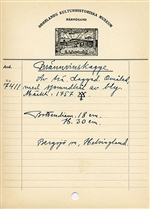 HÄLSINGLANDS KULTURHISTORISKA MUSEUM
Brännvinskagge.
7411 Av trä, laggad. Omålad,
med sprundtut av bly.
Märkt: 1757.
Bottendiam. 18 cm.
H. 30 cm.
Bergsjö sn, Helsingland.